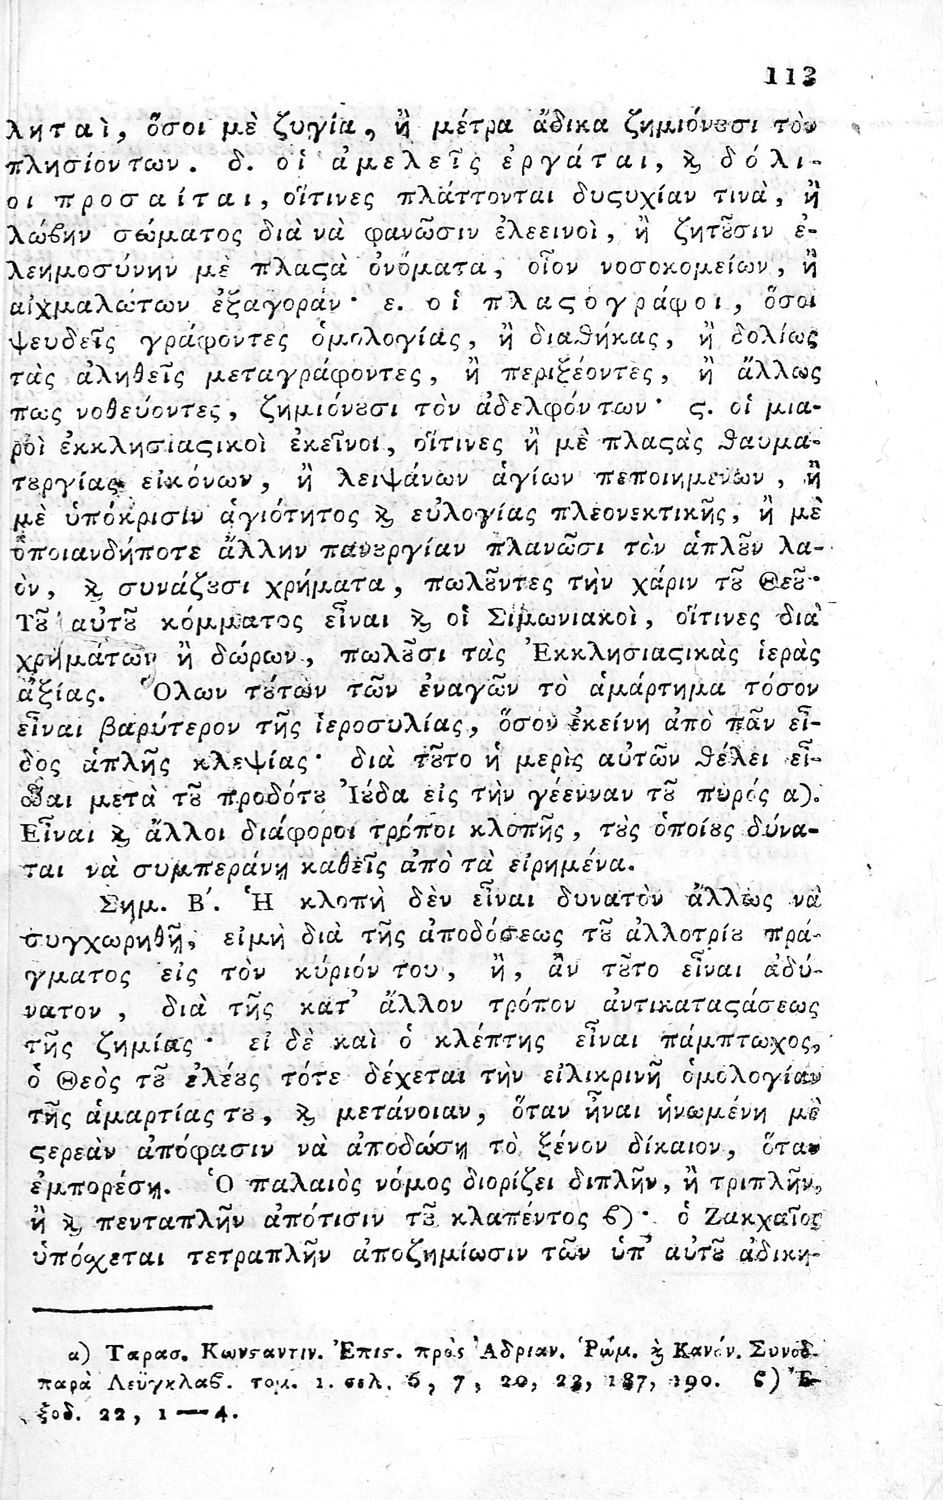 113
ληταὶ, ὅσοι μὲ ζυγία, ἢ μέτρα ἄδικα ζημιόνȣσι τὸν
πλησίον των. δ. οἱ ἀμελεῖς ἐργάται, ϗ δόλι-
οι προσαίται, οἵτινες πλάττονται δυςυχίαν τινὰ, ἢ
λώβην σώματος διὰ νὰ φανῶσιν ἐλεεινοὶ, ἢ ζητȣ͂σιν ἐ-
λεημοσύνην μὲ πλαςὰ ὀνόματα, οἷον νοσοκομείων, ἢ
αἰχμαλώτων ἐξαγοράν· ε. οἱ πλαςογράφοι, ὅσοι
ψευδεῖς γράφοντες ὁμολογίας, ἢ διαθήκας, ἢ δολίως
τὰς ἀληθεῖς μεταγράφοντες, ἢ περιξέοντες, ἢ ἄλλως
πως νοθεύοντες, ζημιόνȣσι τὸν ἀδελφόν των· ς. οἱ μια-
ροὶ ἐκκλησιαςικοὶ ἐκεῖνοι, οἵτινες ἢ μὲ πλαςὰς θαυμα-
τȣργίας εἰκόνων, ἢ λειψάνων ἁγίων πεποιημένων, ἢ
μὲ ὑπόκρισιν ἁγιότητος ϗ εὐλογίας πλεονεκτικῆς, ἢ μὲ
ὁποιανδήποτε ἄλλην πανȣργίαν πλανῶσι τὸν ἁπλȣ͂ν λα-
ὸν, ϗ συνάζȣσι χρήματα, πωλȣ͂ντες τὴν χάριν τȣ͂ Θεȣ͂·
Τȣ͂ αὐτȣ͂ κόμματος εἶναι ϗ οἱ Σιμωνιακοὶ, οἵτινες διὰ
χρημάτων ἢ δώρων, πωλȣ͂σι τὰς Ἐκκλησιαςικὰς ἱερὰς
ἀξίας. Ὅλων τȣ́των τῶν ἐναγῶν τὸ ἁμάρτημα τόσον
εἶναι βαρύτερον τῆς ἱεροσυλίας, ὅσον ἐκείνη ἀπὸ πᾶν εἶ-
δος ἁπλῆς κλεψίας· διὰ τȣ͂το ἡ μερὶς αὐτῶν θέλει εἶ-
σθαι μετὰ τȣ͂ προδότȣ Ἰȣ́δα εἰς τὴν γέενναν τȣ͂ πυρός α).
Εἶναι ϗ ἄλλοι διάφοροι τρόποι κλοπῆς, τȣ̀ς ὁποίȣς δύνα-
ται νὰ συμπεράνῃ καθεῖς ἀπὸ τὰ εἰρημένα.
Σημ. Β΄. Ἡ κλοπὴ δὲν εἶναι δυνατὸν ἄλλως νὰ
συγχωρηθῇ, εἰμὴ διὰ τῆς ἀποδόσεως τȣ͂ ἀλλοτρίȣ πρά-
γματος εἰς τὸν κύριόν του, ἢ, ἂν τȣ͂το εἶναι ἀδύ-
νατον, διὰ τῆς κατ' ἄλλον τρόπον ἀντικαταςάσεως
τῆς ζημίας· εἰ δὲ καὶ ὁ κλέπτης εἶναι πάμπτωχος,
ὁ Θεὸς τȣ͂ ἐλέȣς τότε δέχεται τὴν εἰλικρινῆ ὁμολογίαν
τῆς ἁμαρτίας τȣ, ϗ μετάνοιαν, ὅταν ἦναι ἡνωμένη μὲ
ςερεὰν ἀπόφασιν νὰ ἀποδώσῃ τὸ ξένον δίκαιον, ὅταν
ἐμπορέσῃ. Ὁ παλαιὸς νόμος διορίζει διπλῆν, ἢ τριπλῆν,
ἢ ϗ πενταπλῆν ἀπότισιν τȣ͂ κλαπέντος ϐ)· ὁ Ζακχαῖος
ὑπόσχεται τετραπλῆν ἀποζημίωσιν τῶν ὑπ' αὐτȣ͂ ἀδικη-
α) Ταρασ. Κωνςαντιν. Ἐπις. πρὸς Ἀδριαν. Ῥώμ. ϗ Κανόν. Συνοδ.
παρὰ Λεϋγκλαϐ. τομ. 1. σελ. 6, 7, 20, 23, 187, 190. ϐ) Ἐ-
ξοδ. 22, 1—4.